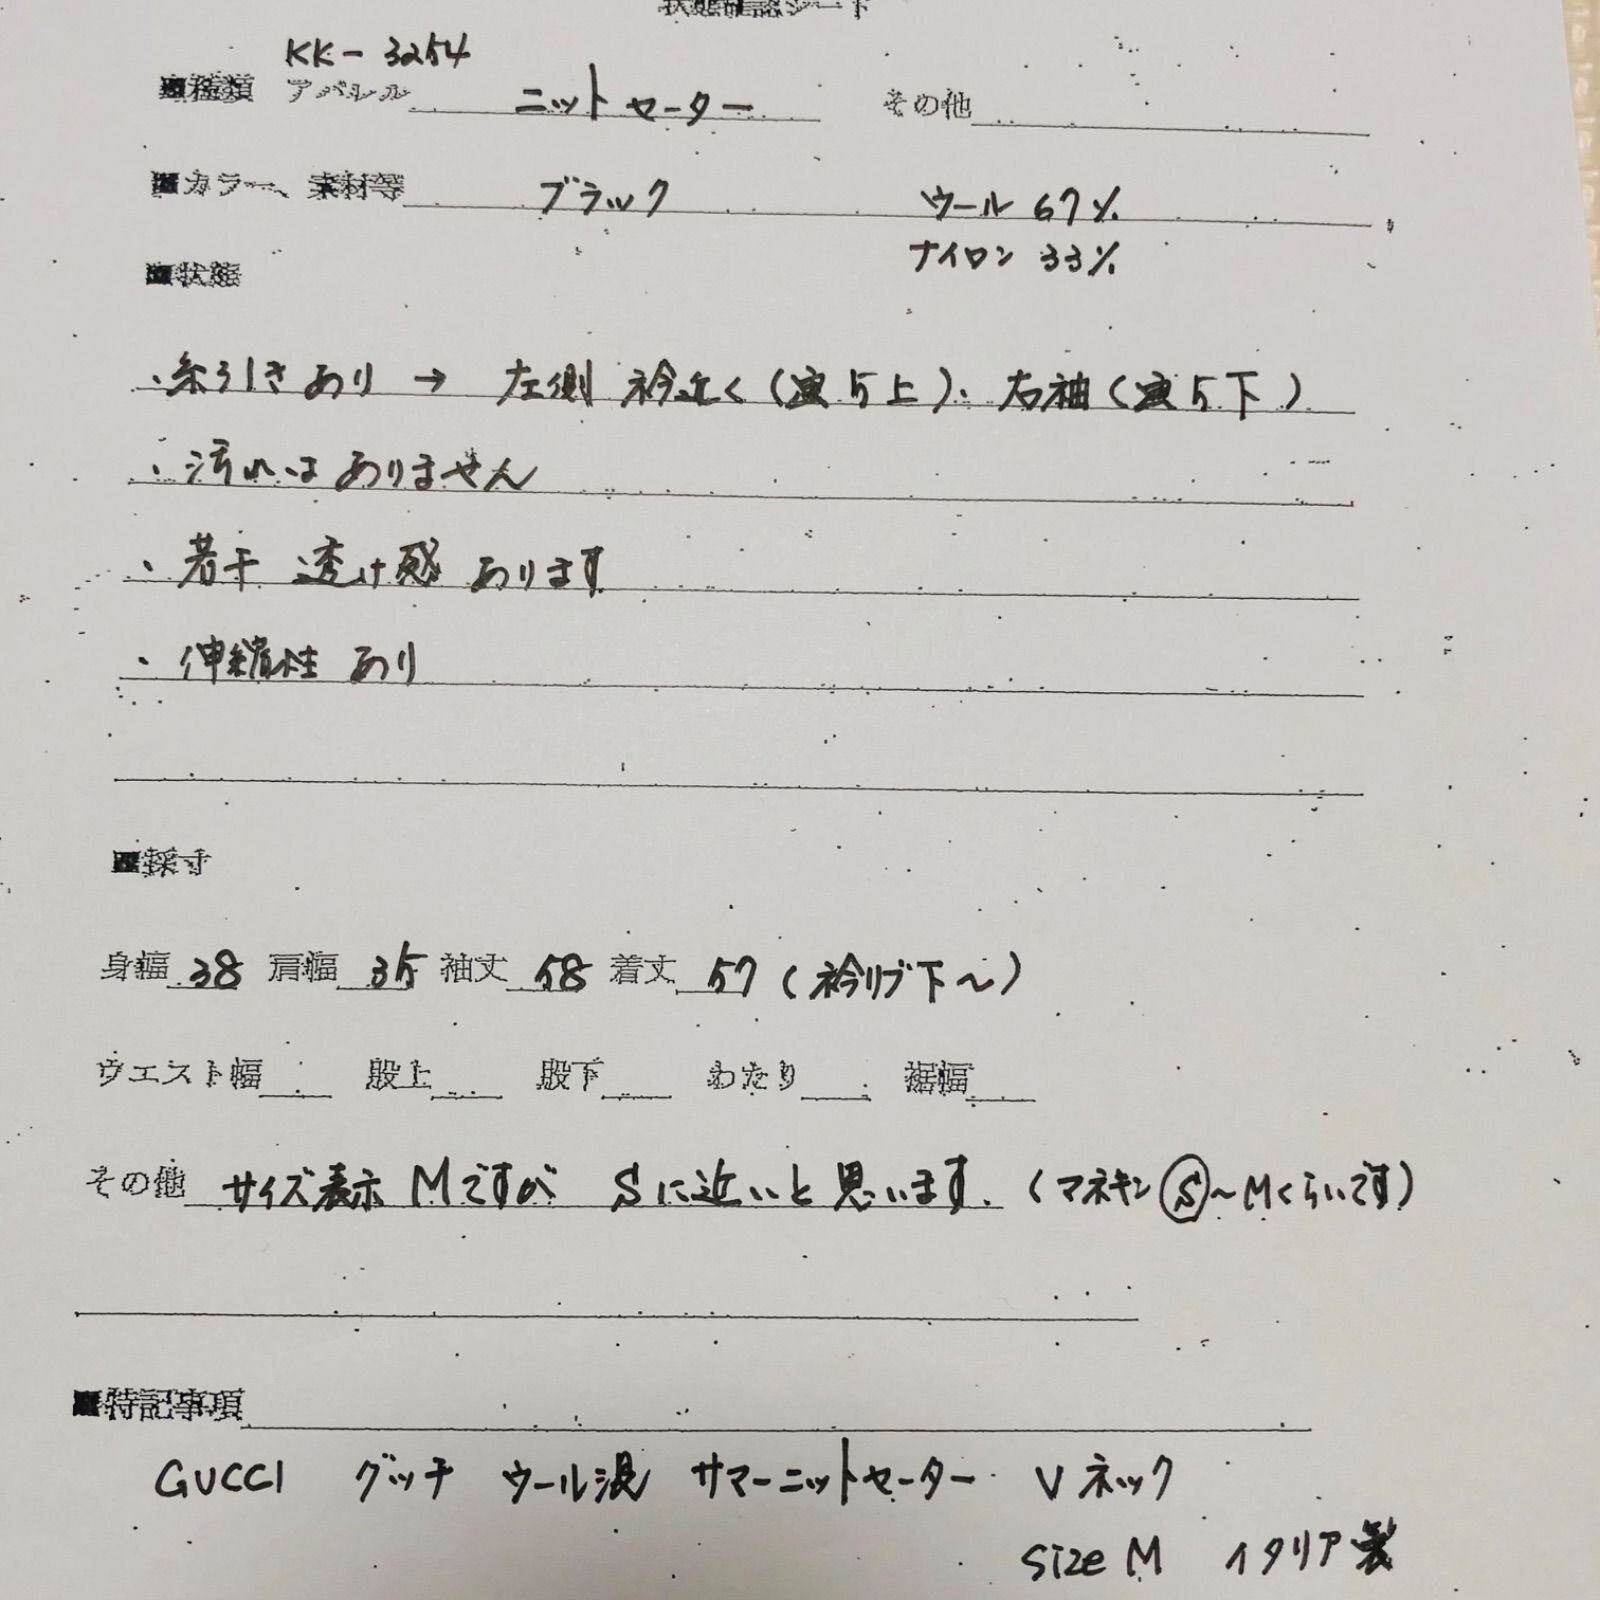 状態確認シート
KK-3254
■種類 アパレル ニットセーター その他
■カラー、素材等 ブラック ウール 67%
ナイロン 33%
■状態
・糸引きあり → 左側 衿近く(写5上)、右袖(写5下)
・汚れはありません
・若干 透け感 あります
・伸縮性 あり
■採寸
身幅 38 肩幅 35 袖丈 58 着丈 57 (衿リブ下〜)
ウエスト幅 股上 股下 わたり 裾幅
その他 サイズ表示 Mですが Sに近いと思います. (マネキン S〜Mくらいです)
■特記事項
GUCCI グッチ ウール混 サマーニットセーター Vネック
size M イタリア製